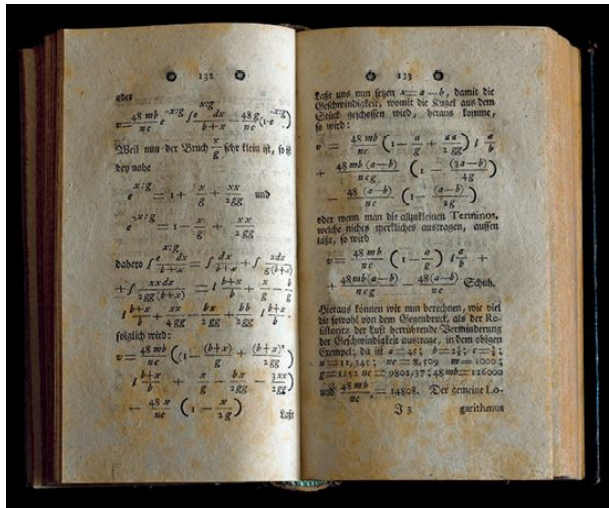 132
oder
v = 48 mb/nc e^-x:g ∫ e^x:g dx/b+x - 48 g/nc (1-e^-x:g)
Weil nun der Bruch x/g sehr klein ist, so ist
bey nahe
e^x:g = 1 + x/g + xx/2gg und
e^-x:g = 1 - x/g + xx/2gg
dahero ∫ e^x:g dx/b+x = ∫ dx/b+x + ∫ xdx/g(b+x)
+ ∫ xxdx/2gg(b+x) = l b+x/b + x/g - b/g
l b+x/b + xx/4gg - bx/2gg + bb/2gg l b+x/b.
folglich wird:
v = 48 mb/nc ((1 - (b+x)/g + (b+x)²/2gg)
l b+x/b + x/g - bx/2gg - 3xx/4gg)
- 48 x/nc (1 - x/2g)
Laßt
133
Laßt uns nun setzen x = a - b, damit die
Geschwindigkeit, womit die Kugel aus dem
Stück geschossen wird, heraus komme,
so wird:
v = 48 mb/nc (1 - a/g + aa/2gg) l a/b
+ 48 mb (a-b)/ncg (1 - (3a-b)/4g)
- 48 (a-b)/nc (1 - (a-b)/2g)
oder wenn man die allzukleinen Terminos,
welche nichts merkliches austragen, aussen
läßt, so wird
v = 48 mb/nc (1 - a/g) l a/b +
+ 48 mb(a-b)/ncg - 48(a-b)/nc Schuh.
Hieraus können wir nun berechnen, wie viel
die sowohl von dem Gegendruck, als der Re-
sistentz der Luft herrührende Verminderung
der Geschwindigkeit austrage, in dem obigen
Exempel; da ist
m = 1000;
g = 1152 nc = 9802,37; 48 mb = 126000
und 48 mb/nc = 14808. Der gemeine Lo-
J 3 garithmus